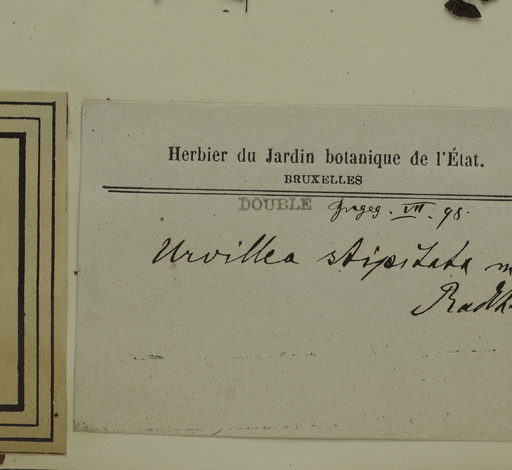 Herbier du Jardin botanique de l'État.
BRUXELLES
DOUBLE VII. 98.
Urvillea stipitata
Radlk.